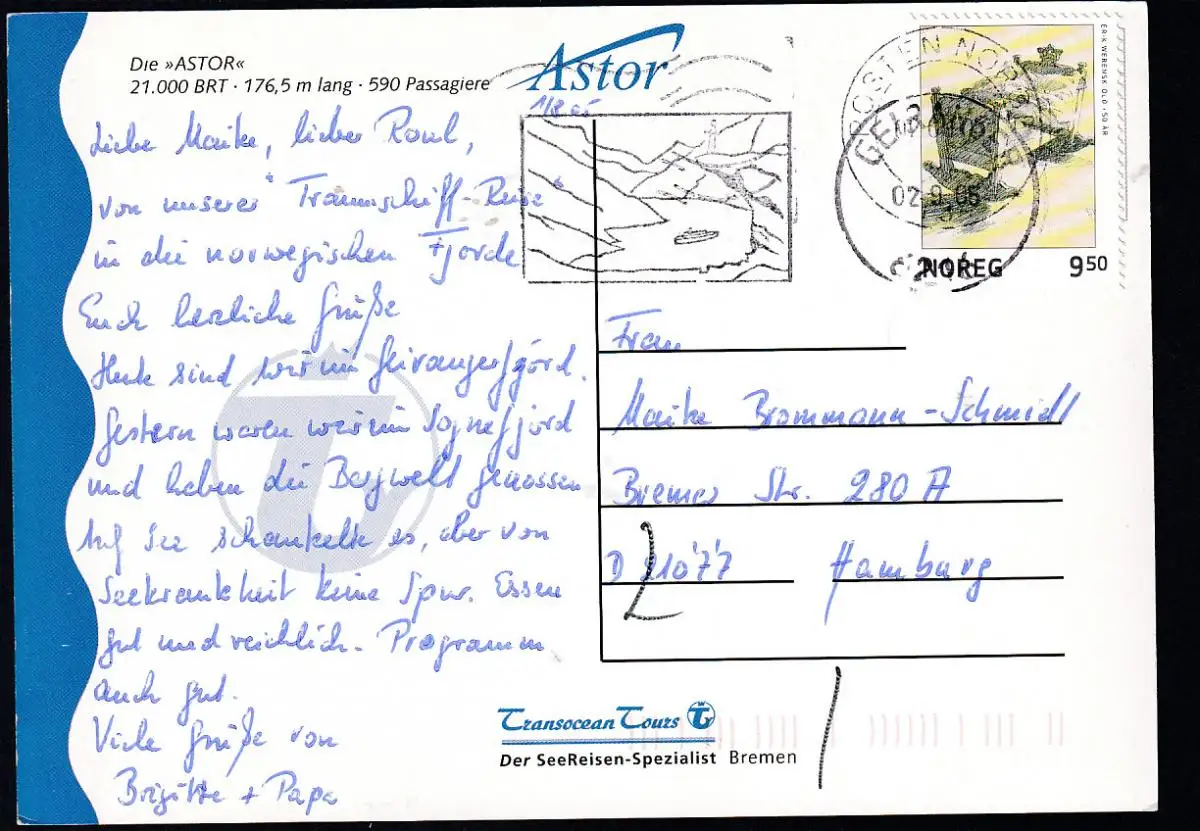 Die »ASTOR«
21.000 BRT · 176,5 m lang · 590 Passagiere
Astor
Liebe Maike, lieber Roul,
von unserer "Traumschiff-Reise"
in die norwegischen Fjorde
Euch herzliche Grüße
Heute sind wir im Geirangerfjord.
Gestern waren wir im Sognefjord
und haben die Bergwelt genossen
Auf See schaukelte es, aber von
Seekrankheit keine Spur. Essen
gut und reichlich. Programm
auch gut.
Viele Grüße von
Brigitte + Papa
POSTEN NORGE
02.9.05
ERIK WERENSKIOLD · 150 ÅR
NOREG 9 50
Frau
Maike Brommann-Schmidt
Bremer Str. 280 A
D 21077 Hamburg
Transocean Tours
Der SeeReisen-Spezialist Bremen